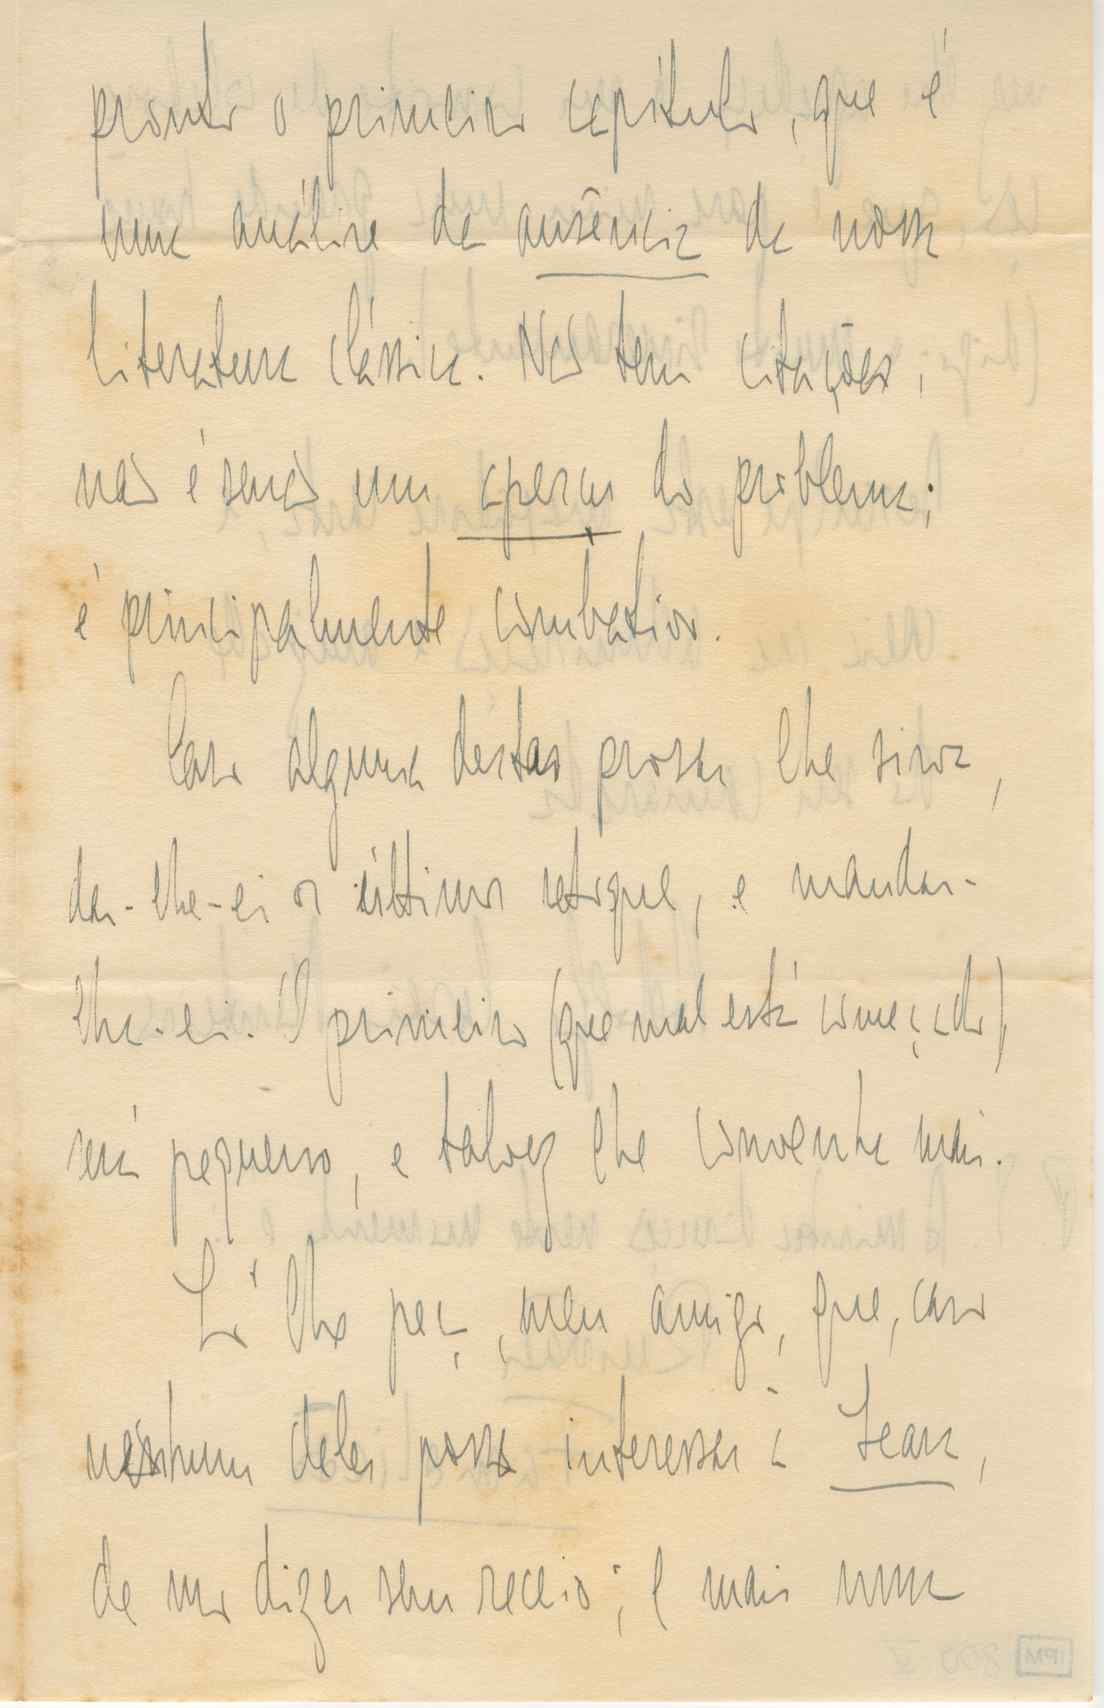 pronto o primeiro capítulo, que é
uma análise da ausência da nossa
literatura clássica. Não tem citações,
não é senão um aperçu do problema;
é principalmente combativo.
Caso alguma destas prosas lhe sirva,
dar-lhe-ei os últimos retoque, e mandar-
lha-ei. O primeiro (que mal está começado),
será pequeno, e talvez lhe convenha mais.
Só lhe peço, meu amigo, que, caso
nenhum deles possa interessar à Seara,
de mo dizer sem receio; e mais uma